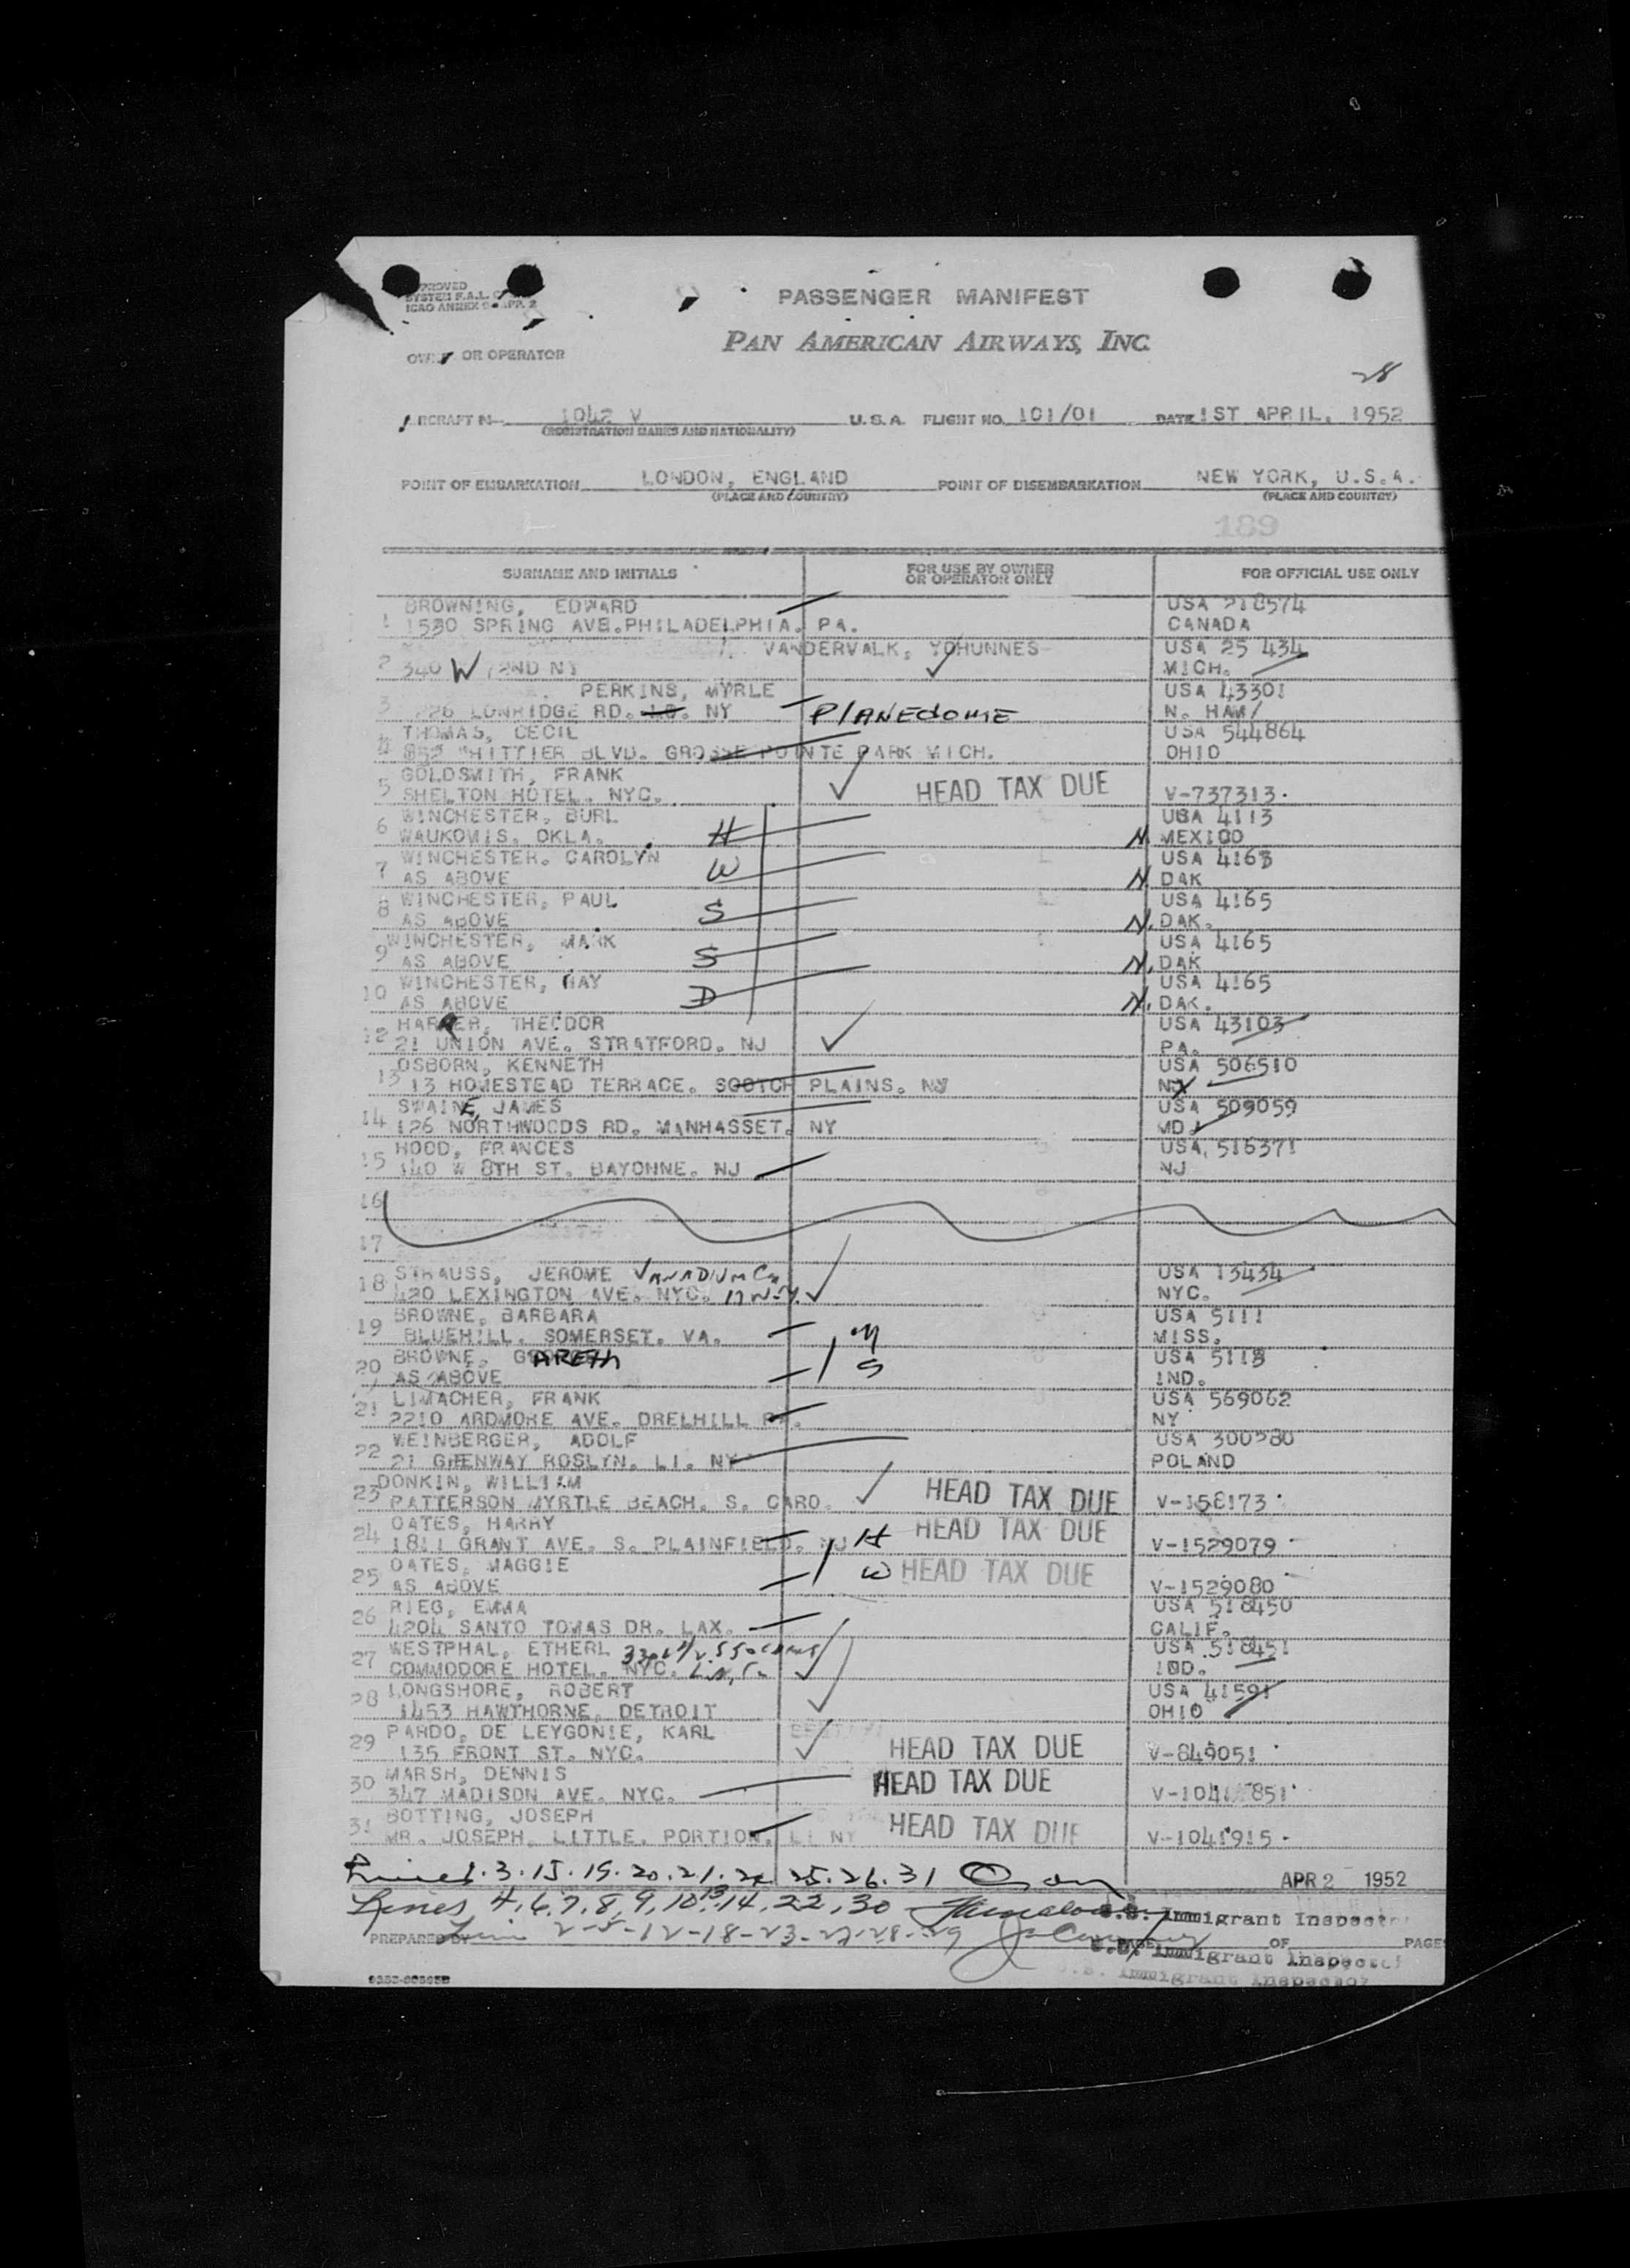 PASSENGER MANIFEST
PAN AMERICAN AIRWAYS, INC
OR OPERATOR
28
1042 V U.S.A. FLIGHT NO. 101/01 DATE 1ST APRIL, 1952
(REGISTRATION MARKS AND NATIONALITY)
POINT OF EMBARKATION LONDON, ENGLAND POINT OF DISEMBARKATION NEW YORK, U.S.A.
(PLACE AND COUNTRY) (PLACE AND COUNTRY)
189
SURNAME AND INITIALS FOR USE BY OWNER OR OPERATOR ONLY FOR OFFICIAL USE ONLY
BROWNING, EDWARD USA 218574
1 1530 SPRING AVE. PHILADELPHIA. PA. CANADA
VANDERVALK, YOHUNNES USA 25 434
2 340 W 72ND NY MICH.
PERKINS, MYRLE USA 43301
3 LONRIDGE RD. NY PLANEDOME N. HAM
THOMAS, CECIL USA 544864
4 WHITTIER BLVD. GROSSE POINTE PARK MICH. OHIO
GOLDSMITH, FRANK
5 SHELTON HOTEL. NYC. HEAD TAX DUE V-737313.
WINCHESTER, BURL USA 4113
6 WAUKOMIS, OKLA. H N. MEXICO
WINCHESTER. CAROLYN USA 4163
7 AS ABOVE W N. DAK
WINCHESTER, PAUL USA 4165
8 AS ABOVE S N. DAK.
WINCHESTER, MARK USA 4165
9 AS ABOVE S N. DAK
WINCHESTER, GAY USA 4165
10 AS ABOVE D N. DAK.
HARPER, THEODOR USA 43103
12 21 UNION AVE. STRATFORD. NJ PA.
OSBORN, KENNETH USA 506510
13 13 HOMESTEAD TERRACE. SCOTCH PLAINS. NY
SWAINE, JAMES USA 509059
14 126 NORTHWOODS RD. MANHASSET. NY MD.
HOOD, FRANCES USA. 516371
15 140 W 8TH ST. BAYONNE. NJ NJ
16
17
STRAUSS, JEROME VANADIUM CO USA 13434
18 420 LEXINGTON AVE. NYC. 17 N.Y. NYC.
BROWNE, BARBARA USA 5111
19 BLUEHILL. SOMERSET. VA. M MISS.
BROWNE, GARETH USA 5113
20 AS ABOVE S IND.
LIMACHER, FRANK USA 569062
21 2210 ARDMORE AVE. DRELHILL PA. NY
WEINBERGER, ADOLF USA 300580
22 21 GREENWAY ROSLYN. LI. NY POLAND
DONKIN, WILLIAM
23 PATTERSON MYRTLE BEACH. S. CARO. HEAD TAX DUE V-158173
OATES, HARRY
24 1811 GRANT AVE. S. PLAINFIELD. NJ H HEAD TAX DUE V-1529079
OATES, MAGGIE
25 AS ABOVE W HEAD TAX DUE V-1529080
RIEG, EMMA USA 518450
26 4204 SANTO TOMAS DR. LAX. CALIF.
WESTPHAL, ETHERL USA 518451
27 COMMODORE HOTEL. NYC. IND.
LONGSHORE, ROBERT USA 41591
28 1453 HAWTHORNE, DETROIT OHIO
PARDO, DE LEYGONIE, KARL
29 135 FRONT ST. NYC. HEAD TAX DUE V-849051
MARSH, DENNIS
30 347 MADISON AVE. NYC. HEAD TAX DUE
BOTTING, JOSEPH
31 MR. JOSEPH. LITTLE. PORTION. LI NY HEAD TAX DUE V-1041915.
3.15.19.20.21.24 25.26.31 APR 2 1952
Lines 4,6,7,8,9,10,13,14,22,30 U.S. Immigrant Inspector
2-5-12-18-23-27-28-29
PREPARED BY PAGE OF PAGES
U.S. Immigrant Inspector
U.S. Immigrant Inspector